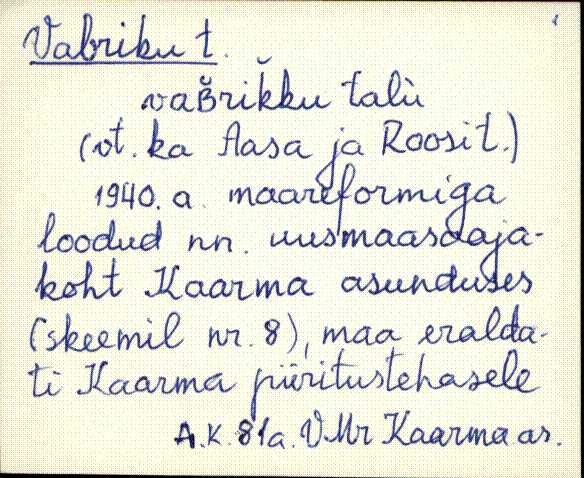 Vabriku t.
vaʙ̆rikku talù
(vt. ka Aasa ja Roosi t.)
1940. a. maareformiga
loodud nn. uusmaasaaja-
koht Kaarma asunduses
(skeemil nr. 8), maa eralda-
ti Kaarma piiritustehasele
A.K. 81a. VMr Kaarma as.